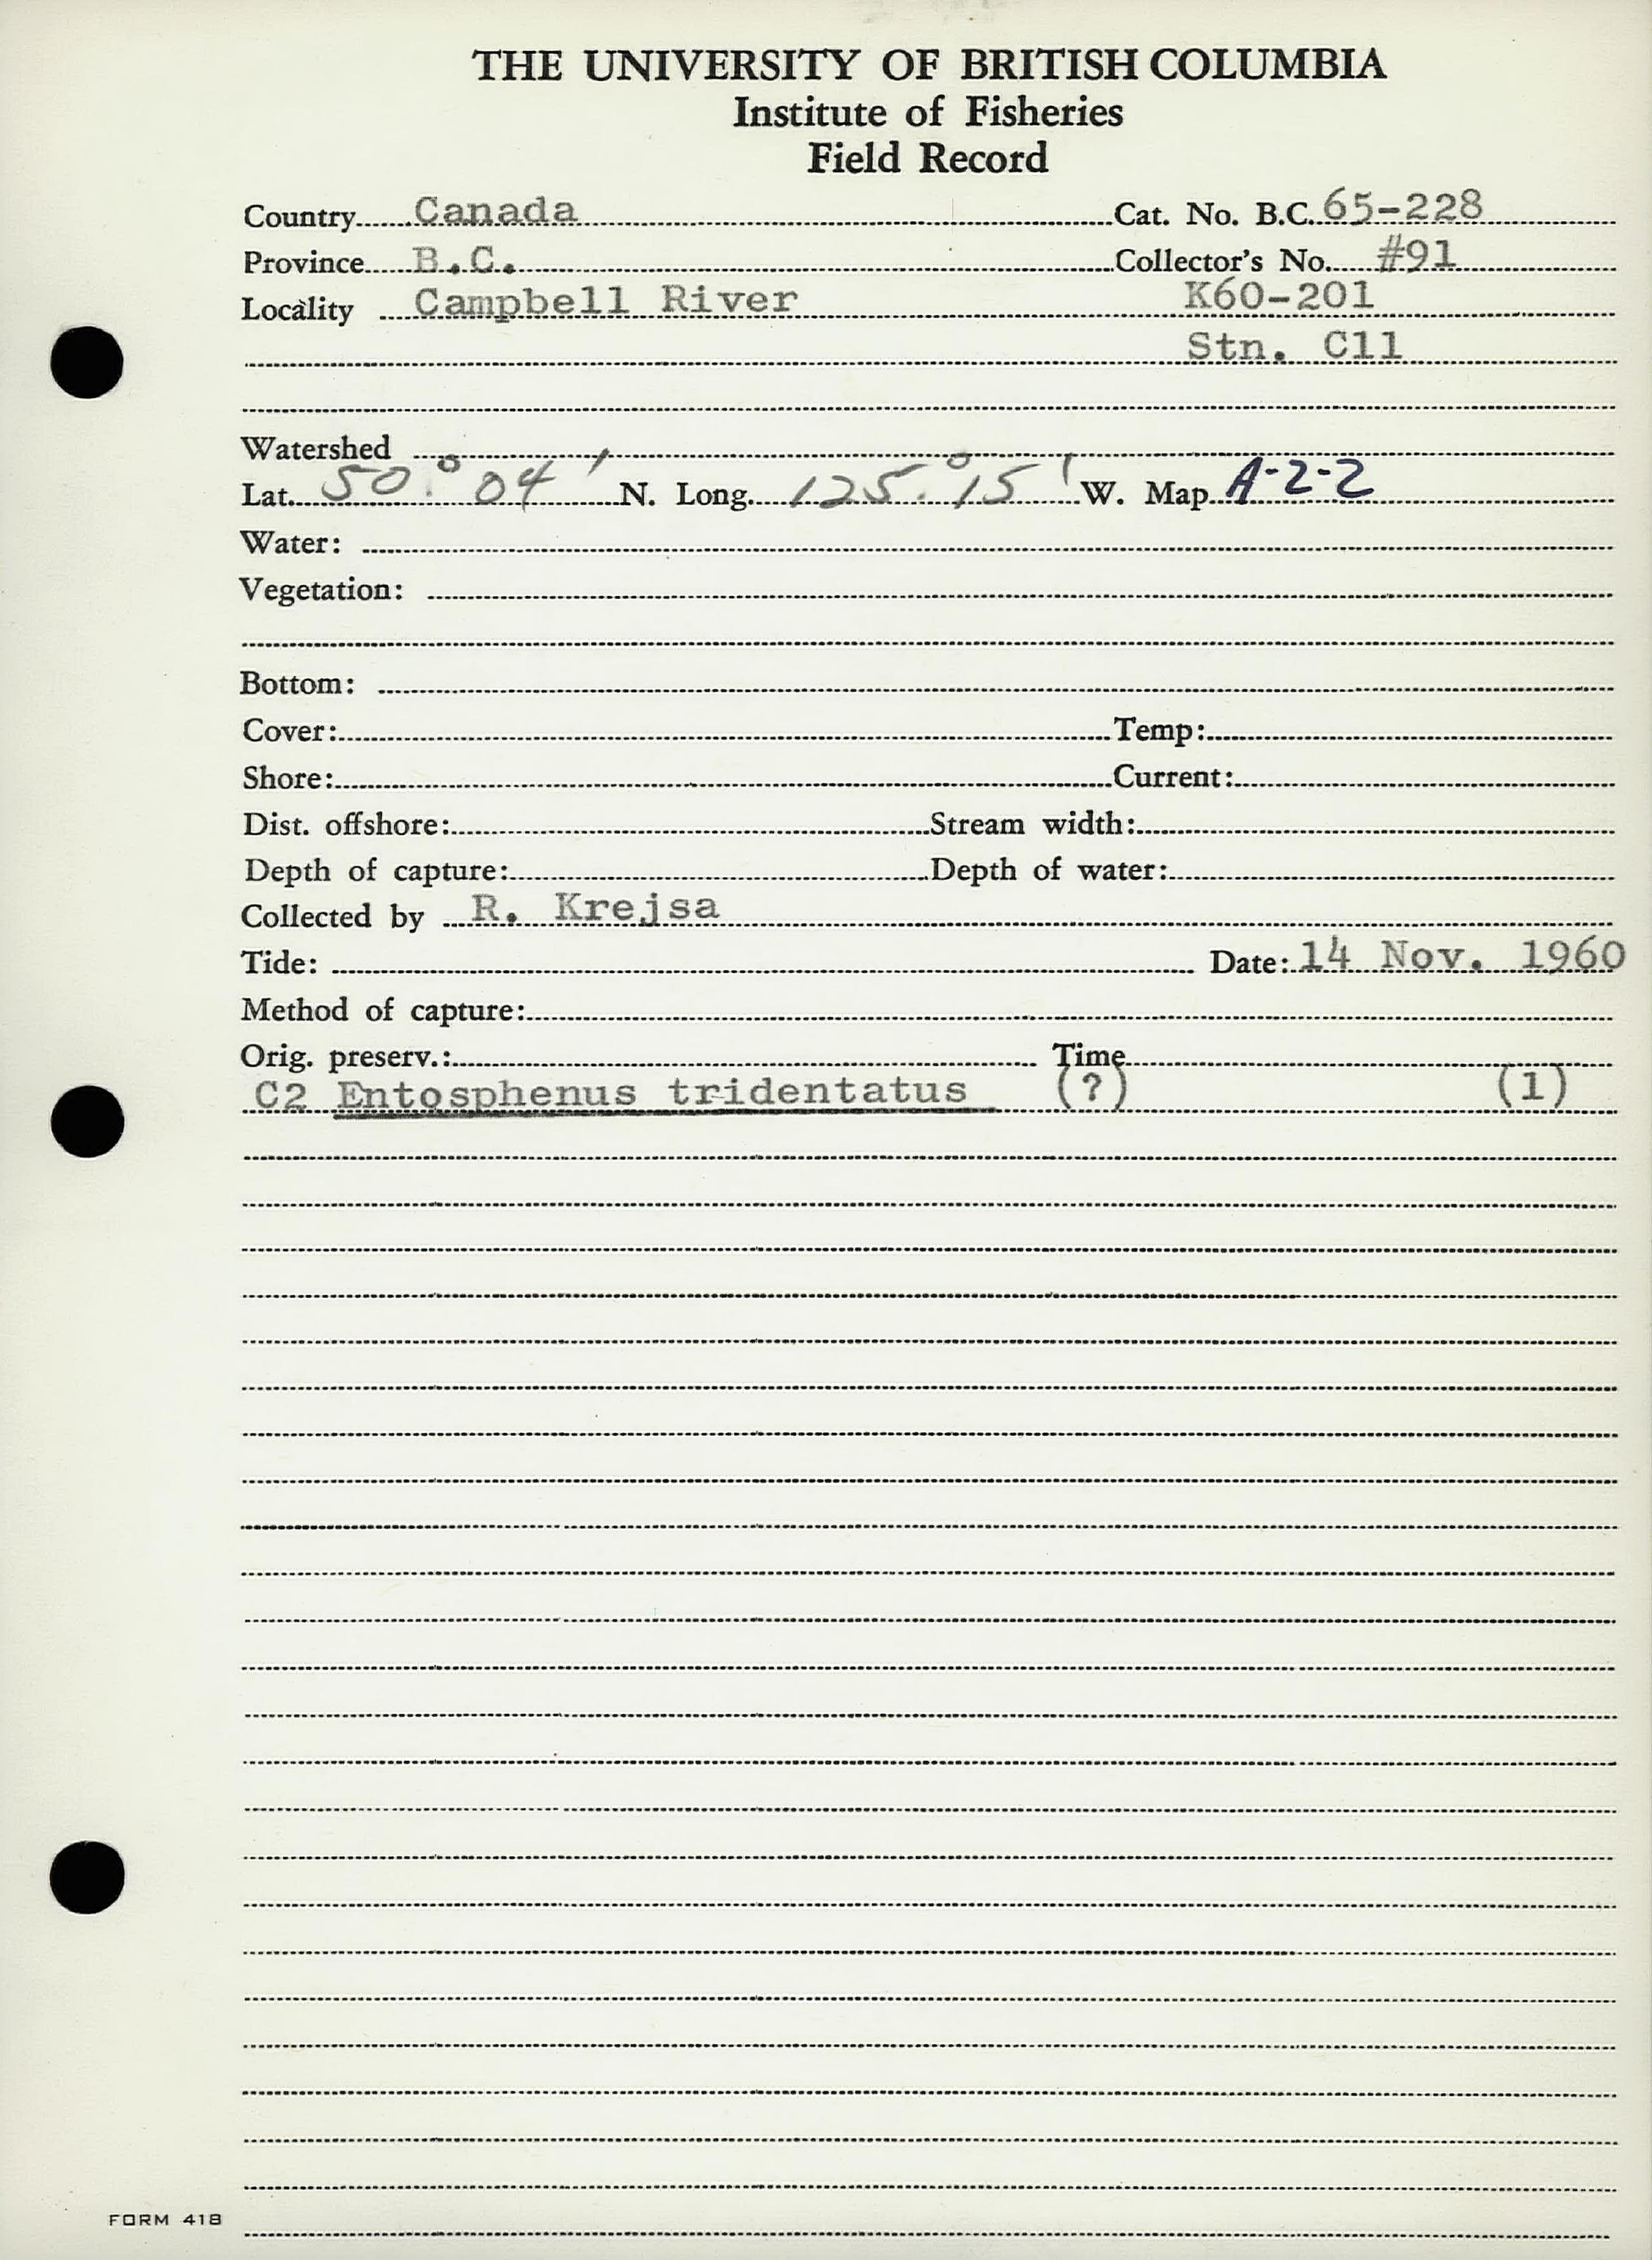 THE UNIVERSITY OF BRITISH COLUMBIA
Institute of Fisheries
Field Record
Country Canada Cat. No. B.C. 65-228
Province B.C. Collector's No. #91
Locality Campbell River K60-201
Stn. C11
Watershed
Lat. 50° 04' N. Long. 125° 15' W. Map A-2-2
Water:
Vegetation:
Bottom:
Cover: Temp:
Shore: Current:
Dist. offshore: Stream width:
Depth of capture: Depth of water:
Collected by R. Krejsa
Tide: Date: 14 Nov. 1960
Method of capture:
Orig. preserv.: Time
C2 Entosphenus tridentatus (?) (1)
FORM 418